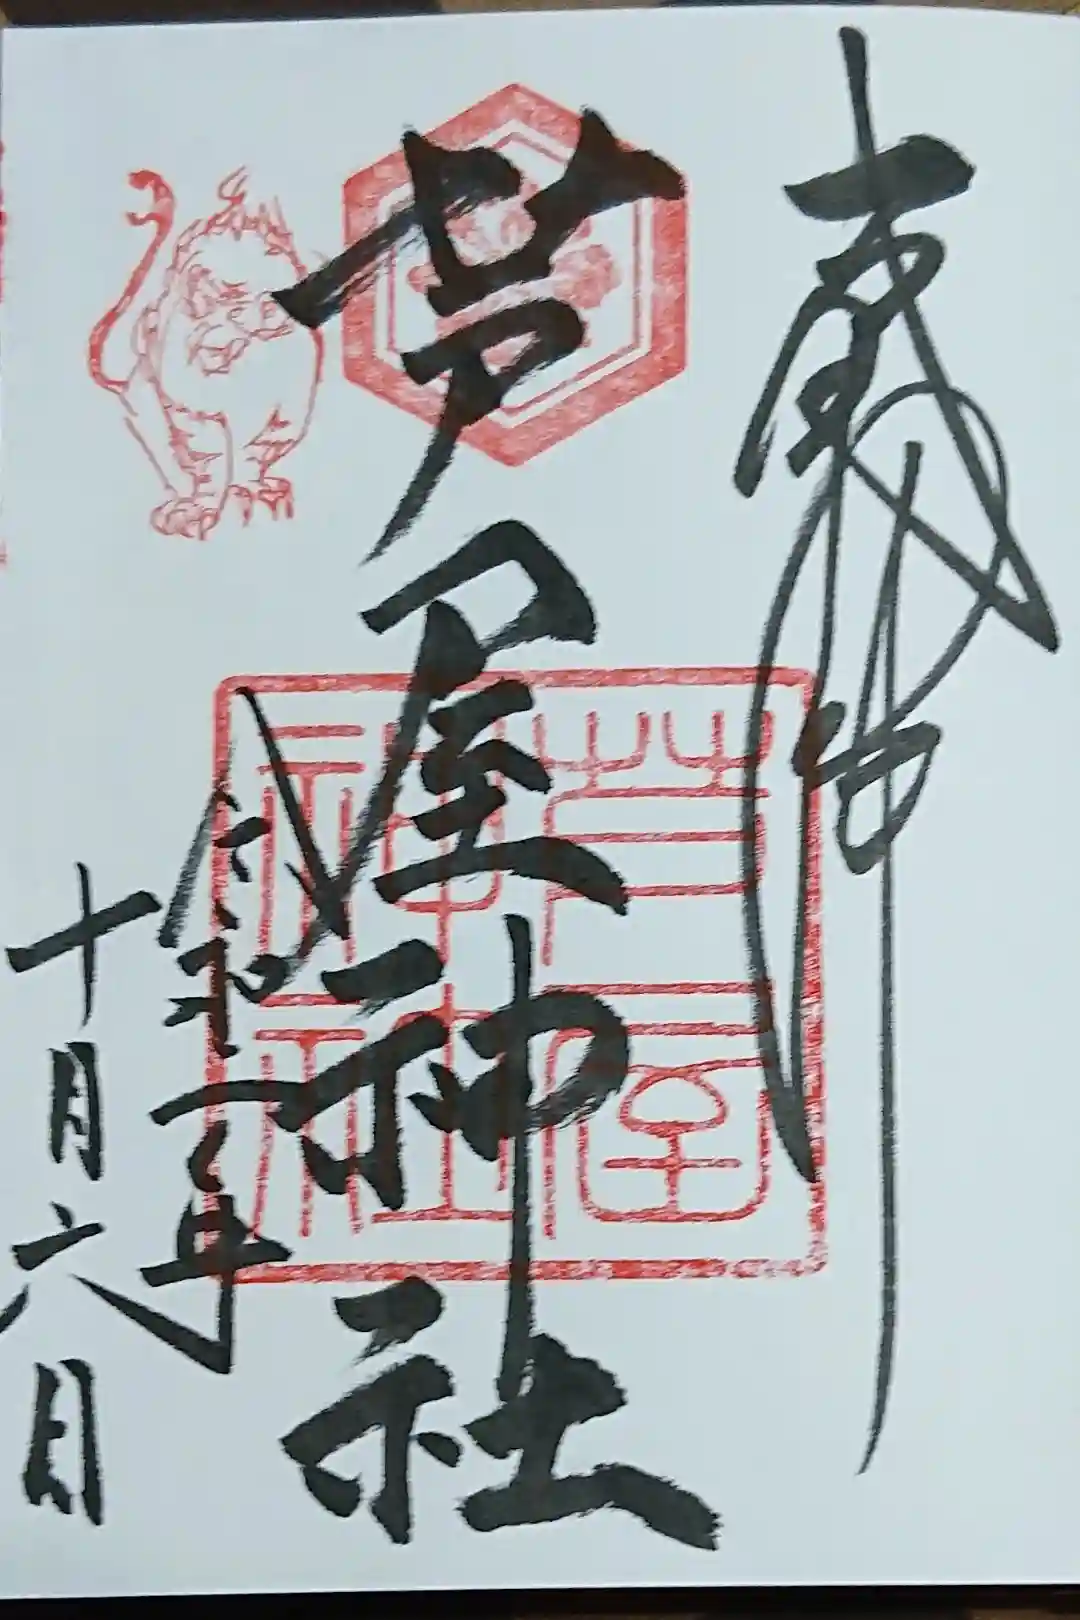 奉拝
芦屋神社
令和二年
十月六日
芦屋
神社